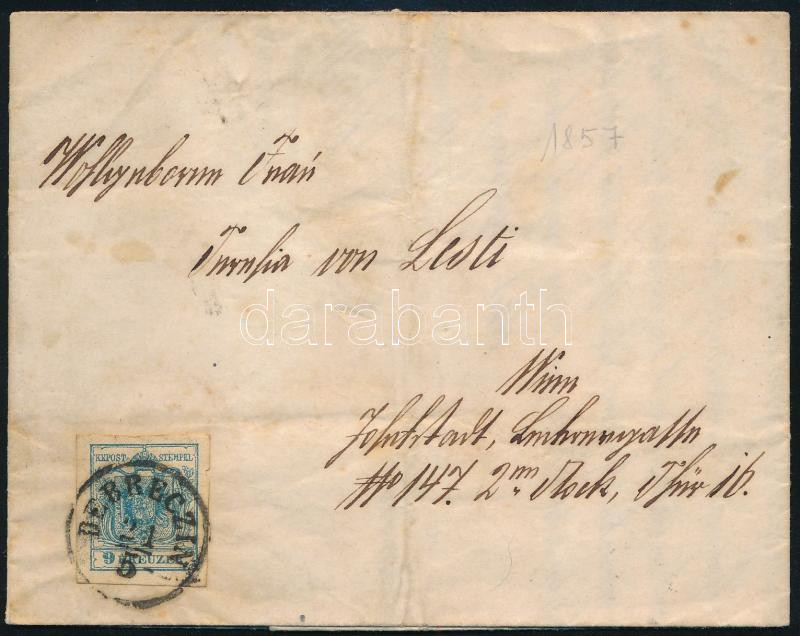 1857
Wohlgeborene Frau
von Lesti
darabanth
Wien
Josefstadt,
No 147. 2ten Stock, Thür 16.
KKPOST-STEMPEL
DEBRECZIN
9 KREUZER